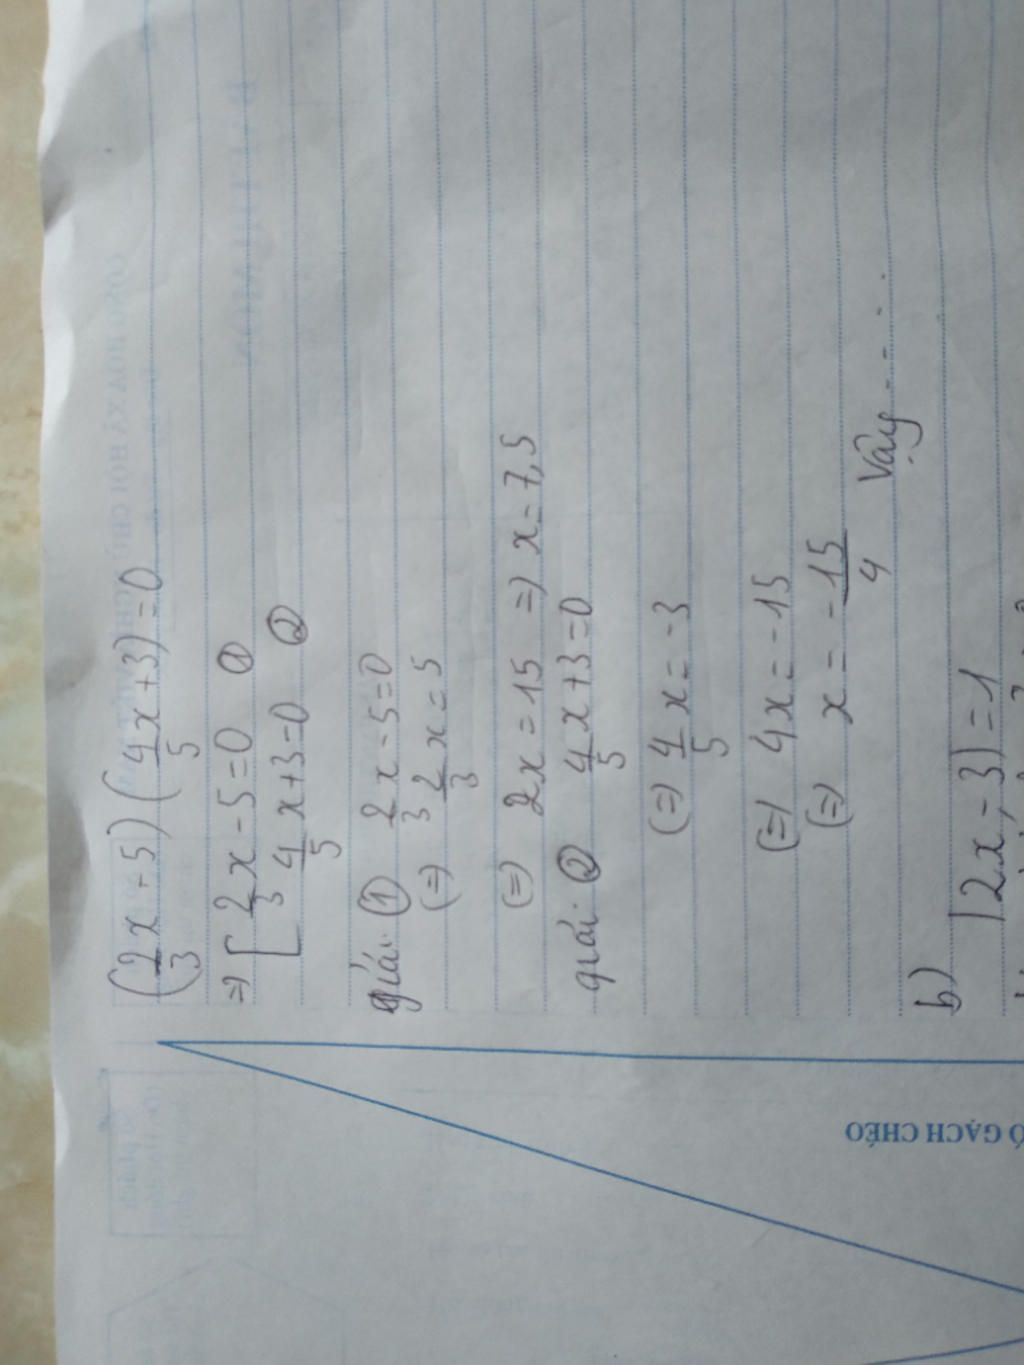 (2/3 x - 5)(4/5 x + 3) = 0
=> [ 2/3 x - 5 = 0 ①
4/5 x + 3 = 0 ②
giải ① 2/3 x - 5 = 0
(=) 2/3 x = 5
(=) 2x = 15 =) x = 7,5
giải ② 4/5 x + 3 = 0
(=) 4/5 x = -3
(=) 4x = -15
(=) x = -15/4 Vậy ....
b) |2x - 3| = 1
Ô GẠCH CHÉO